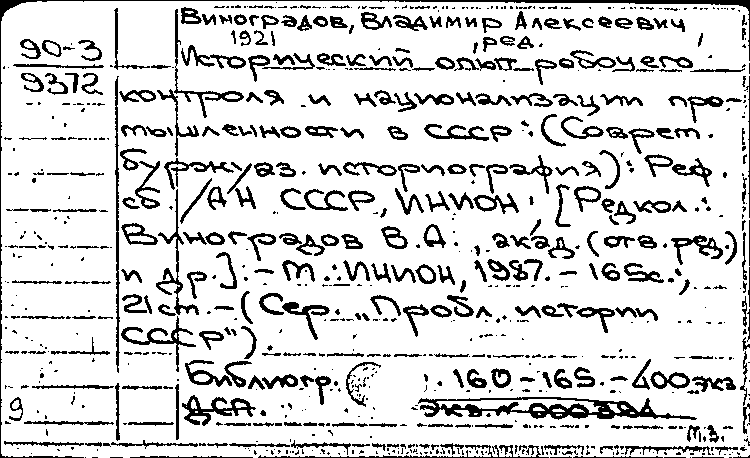 Виноградов, Владимир Алексеевич,
1921 , ред.
90-3
Исторический опыт рабочего
9372
контроля и национализации про-
мышленности в СССР: (Соврет.
буржуаз. историография): Реф.
сб. / АН СССР, ИНИОН; [Редкол.:
Виноградов В.А., акад. (отв. ред.)
и др.]. - М.: ИНИОН, 1987. - 165с.;
21ст. - (Сер. "Пробл. истории
СССР").
Библиогр. : 160-165. - 400экз.
ДСП. экз. № 000384
9
М.З.